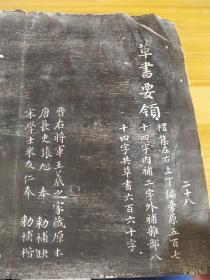 二十八
草書要領
禮集左右上下偏旁原五百七
十四字内補二字外補雜部八
十四字共草書六百六十字
晉右將軍王羲之家藏原本
唐長史張旭奉 勅補缺
宋學士米友仁奉 勅補楷